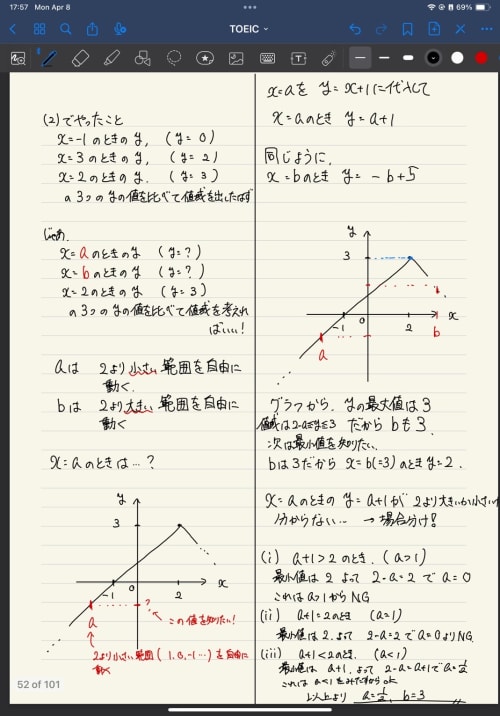 17:57 Mon Apr 8
69%
TOEIC
(2)でやったこと
x=-1のときのy, (y=0)
x=3のときのy, (y=2)
x=2のときのy. (y=3)
の3つのyの値を比べて値域を出したはず
じゃあ,
x=aのときのy (y=?)
x=bのときのy (y=?)
x=2のときのy (y=3)
の3つのyの値を比べて値域を考えれ
ばいい!
aは 2より小さい範囲を自由に
動く.
bは 2より大きい範囲を自由に
動く
x=aのときは…?
y
3
-1
0
2
x
a
?
この値を知りたい!
2より小さい範囲(1, 0, -1 …)を自由に
動く
52 of 101
x=aを y=x+1に代入して
x=aのとき y=a+1
同じように,
x=bのとき y=-b+5
y
3
-1
0
2
b
x
a
グラフから, yの最大値は3
値域は2-a≦y≦3 だからbも3.
次は最小値を知りたい.
bは3だから x=b(=3)のときy=2.
x=aのときの y=a+1が 2より大きいか小さいか
分からない… → 場合分け!
(i) a+1>2のとき. (a>1)
最小値は2 よって 2-a=2で a=0
これはa>1からNG
(ii) a+1=2のとき (a=1)
最小値は2. よって 2-a=2で a=0よりNG.
(iii) a+1<2のとき. (a<1)
最小値は a+1, よって 2-a=a+1で a=1/2
これは a<1をみたすからok
以上より a=1/2, b=3